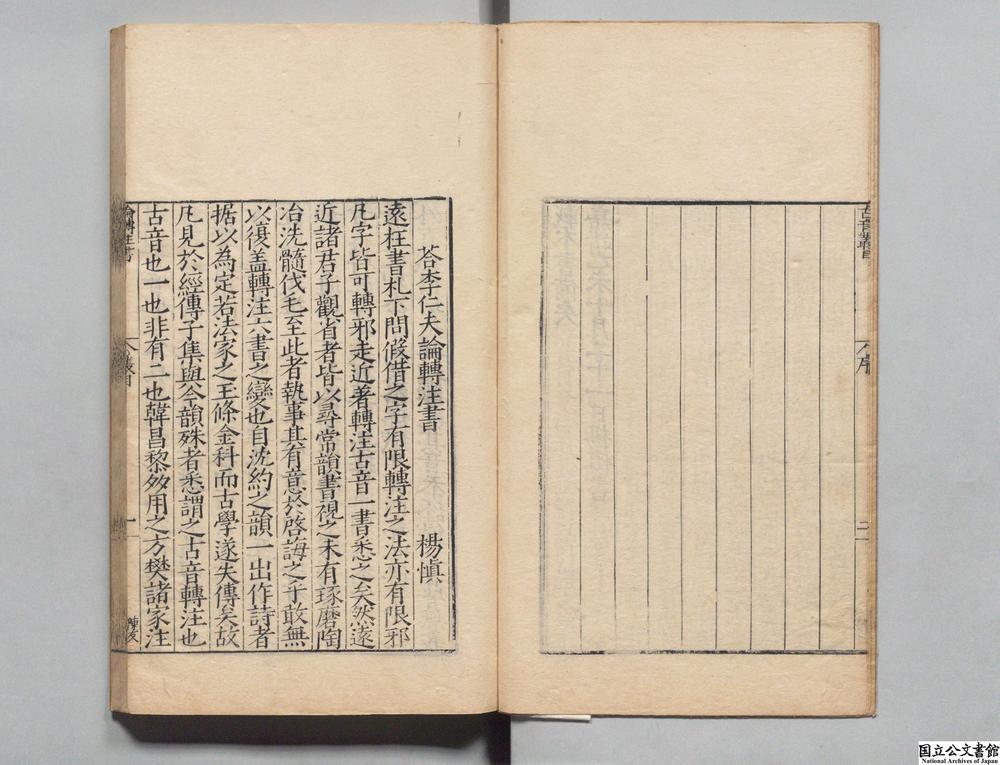 荅李仁夫論轉注書 楊慎
遠枉書札下問假借之字有限轉注之法亦有限邪
凡字皆可轉邪走近著轉注古音一書悉之矣然遠
近諸君子觀省者皆以尋常韻書視之未有琢磨陶
冶洗髓伐毛至此者執事其有意於啓誨之乎敢無
以復盖轉注六書之變也自沈約之韻一出作詩者
据以為定若法家之玉條金科而古學遂失傳矣故
凡見於經傳子集與今韻殊者悉謂之古音轉注也
古音也一也非有二也韓昌黎多用之方樊諸家注
国立公文書館
National Archives of Japan